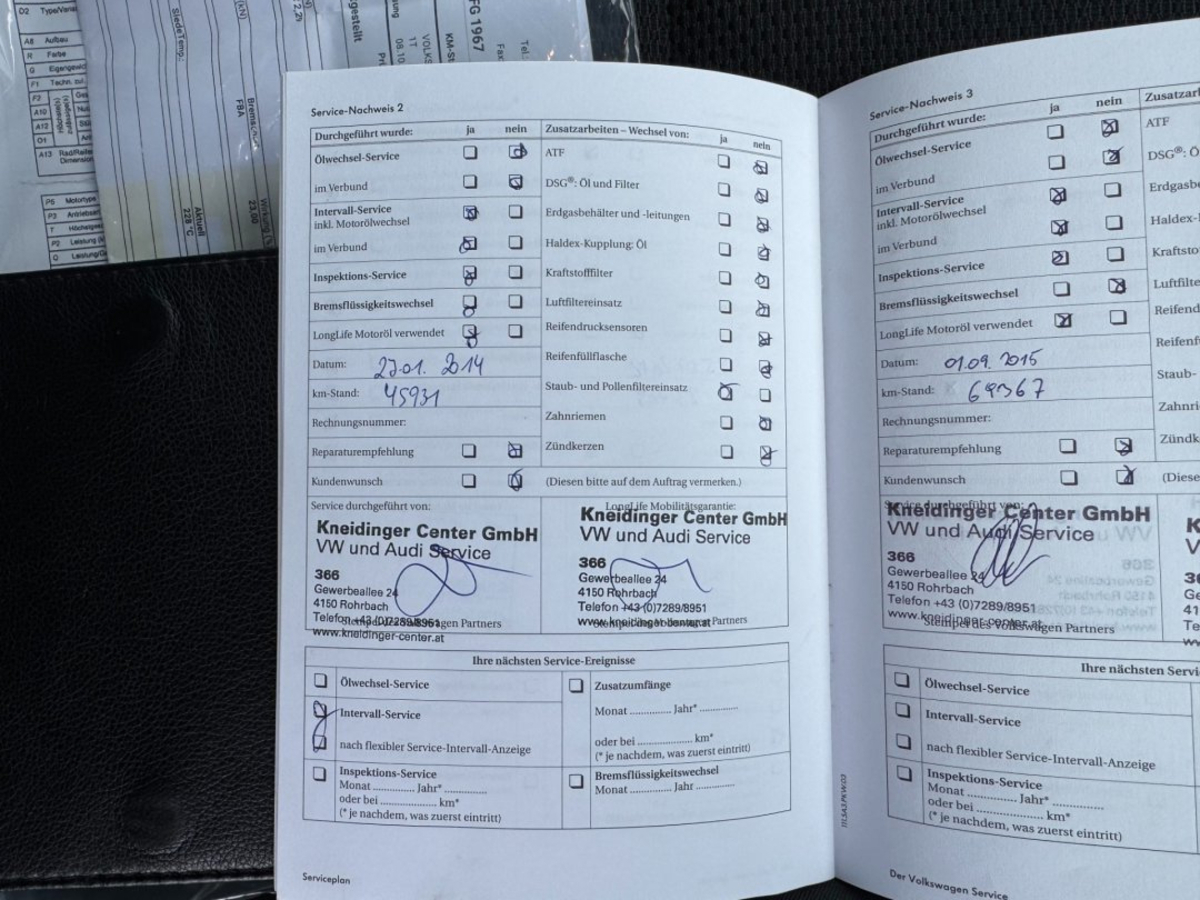 O2 Type/Varia
A8 Aufbau
R Farbe
G Eigengewic
F1 Techn. zul.
F2
A10
A12
O1
A13 Rad/Reife
Dimension
P5 Motortype
P3 Antriebsar
T Höchstges
P2 Leistung (k
Q Leistung/G
SiedeTemp:
Aktuell
228 °C
FBA
23,00
(kN)
gestellt
08.10
VOLKS
1T
KM-St
FG 1967
Tel.:
Fax
Service-Nachweis 2
Durchgeführt wurde: ja nein
Ölwechsel-Service
im Verbund
Intervall-Service
inkl. Motorölwechsel
im Verbund
Inspektions-Service
Bremsflüssigkeitswechsel
LongLife Motoröl verwendet
Datum: 27.01. 2014
km-Stand: 45931
Rechnungsnummer:
Reparaturempfehlung
Kundenwunsch
Zusatzarbeiten – Wechsel von: ja nein
ATF
DSG®: Öl und Filter
Erdgasbehälter und -leitungen
Haldex-Kupplung: Öl
Kraftstofffilter
Luftfiltereinsatz
Reifendrucksensoren
Reifenfüllflasche
Staub- und Pollenfiltereinsatz
Zahnriemen
Zündkerzen
(Diesen bitte auf dem Auftrag vermerken.)
Service durchgeführt von:
Kneidinger Center GmbH
VW und Audi Service
366
Gewerbeallee 24
4150 Rohrbach
Telefon +43 (0)7289/8951
www.kneidinger-center.at
LongLife Mobilitätsgarantie:
Kneidinger Center GmbH
VW und Audi Service
366
Gewerbeallee 24
4150 Rohrbach
Telefon +43 (0)7289/8951
www.kneidinger-center.at
Ihre nächsten Service-Ereignisse
Ölwechsel-Service
Intervall-Service
nach flexibler Service-Intervall-Anzeige
Inspektions-Service
Monat ............ Jahr* ............
oder bei ............ km*
(* je nachdem, was zuerst eintritt)
Zusatzumfänge
Monat ............ Jahr* ............
oder bei ............ km*
(* je nachdem, was zuerst eintritt)
Bremsflüssigkeitswechsel
Monat ............ Jahr ............
Serviceplan
Service-Nachweis 3
Durchgeführt wurde: ja nein
Ölwechsel-Service
im Verbund
Intervall-Service
inkl. Motorölwechsel
im Verbund
Inspektions-Service
Bremsflüssigkeitswechsel
LongLife Motoröl verwendet
Datum: 01.09. 2015
km-Stand: 69367
Rechnungsnummer:
Reparaturempfehlung
Kundenwunsch
Zusatzarb
ATF
DSG®: Ö
Erdgasbe
Haldex-
Kraftsto
Luftfilte
Reifend
Reifenf
Staub-
Zahnri
Zündk
(Diese
Service durchgeführt von:
Kneidinger Center GmbH
VW und Audi Service
366
Gewerbeallee 24
4150 Rohrbach
Telefon +43 (0)7289/8951
www.kneidinger-center.at
Stempel des Volkswagen Partners
Ihre nächsten Servi
Ölwechsel-Service
Intervall-Service
nach flexibler Service-Intervall-Anzeige
Inspektions-Service
Monat ............ Jahr* ............
oder bei ............ km*
(* je nachdem, was zuerst eintritt)
Der Volkswagen Service